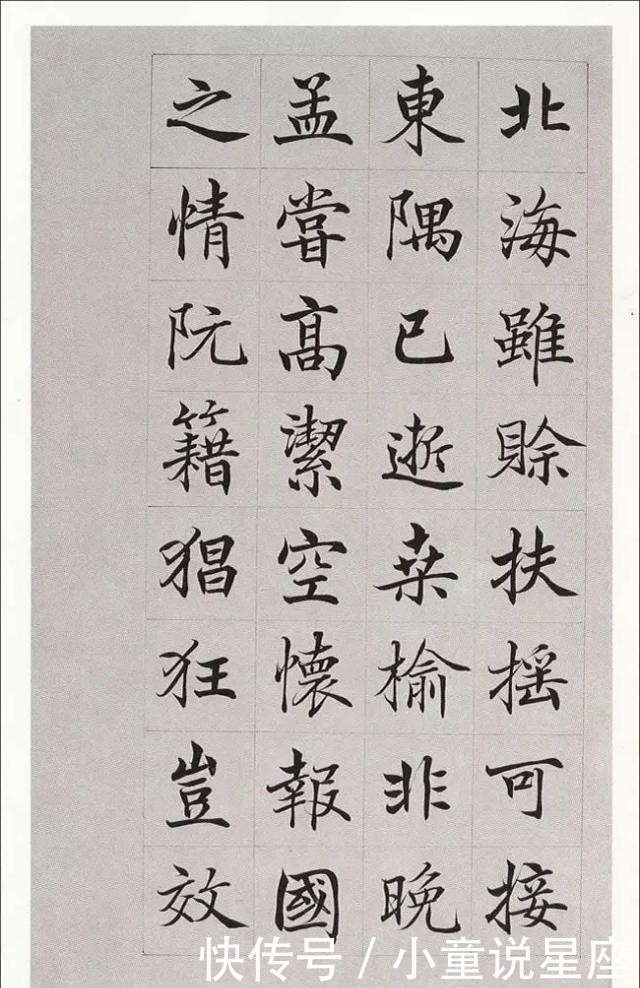 北海雖賒扶摇可接
東隅已逝桒榆非晚
孟嘗高潔空懷報國
之情阮籍猖狂豈效
快传号/小童说星座